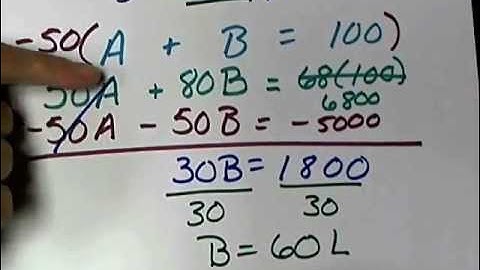 -50(A + B = 100)
50A + 80B = 68(100)
6800
-50A - 50B = -5000
30B = 1800
30 30
B = 60L